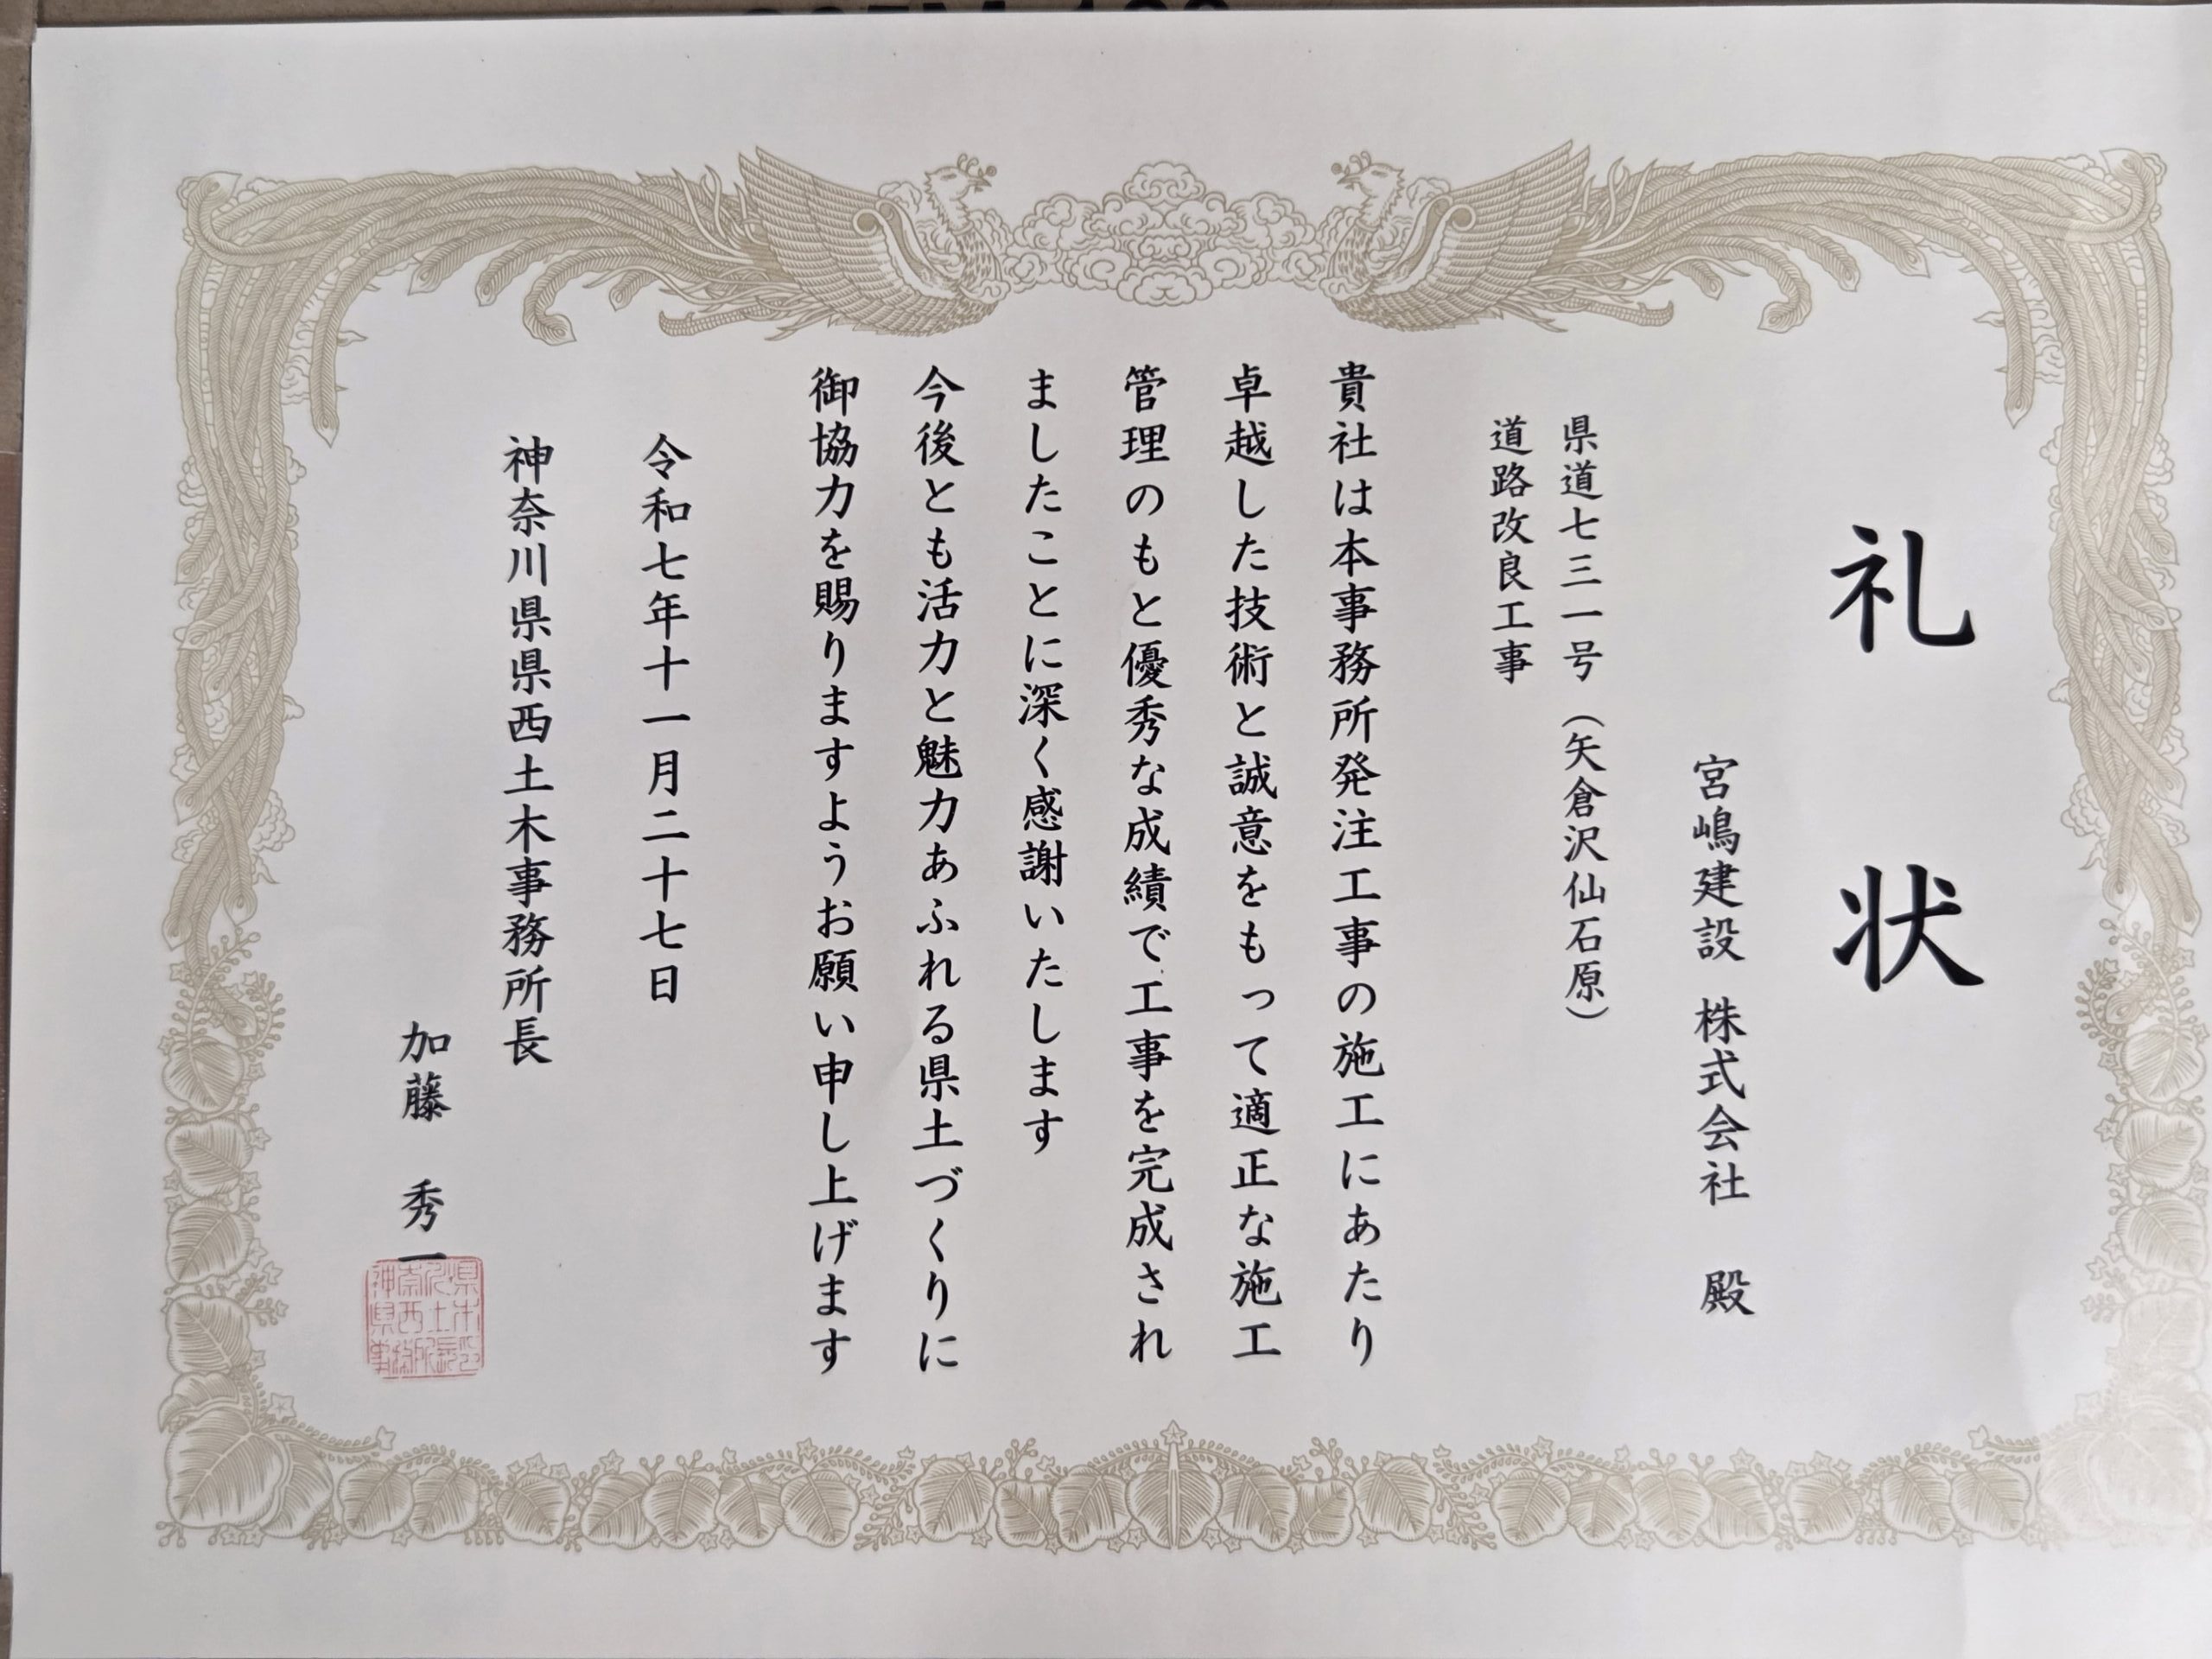 礼状
宮嶋建設 株式会社 殿
県道七三一号（矢倉沢仙石原）
道路改良工事
貴社は本事務所発注工事の施工にあたり
卓越した技術と誠意をもって適正な施工
管理のもと優秀な成績で工事を完成され
ましたことに深く感謝いたします
今後とも活力と魅力あふれる県土づくりに
御協力を賜りますようお願い申し上げます
令和七年十一月二十七日
神奈川県県西土木事務所長
加藤 秀一